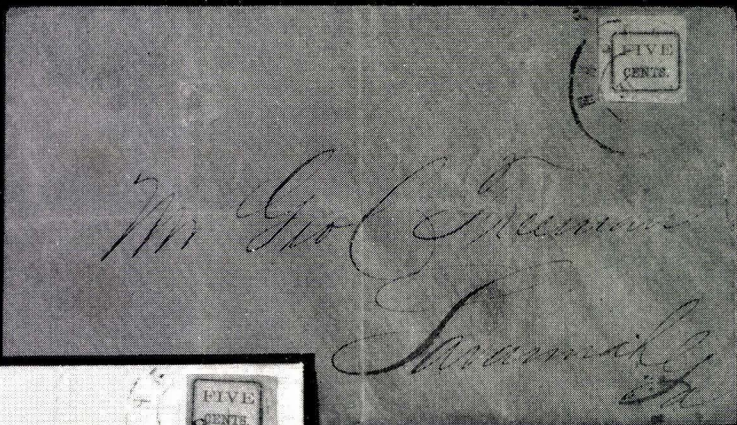 FIVE
CENTS.
Mr Geo C Freeman
Savannah
Ga
FIVE
CENTS